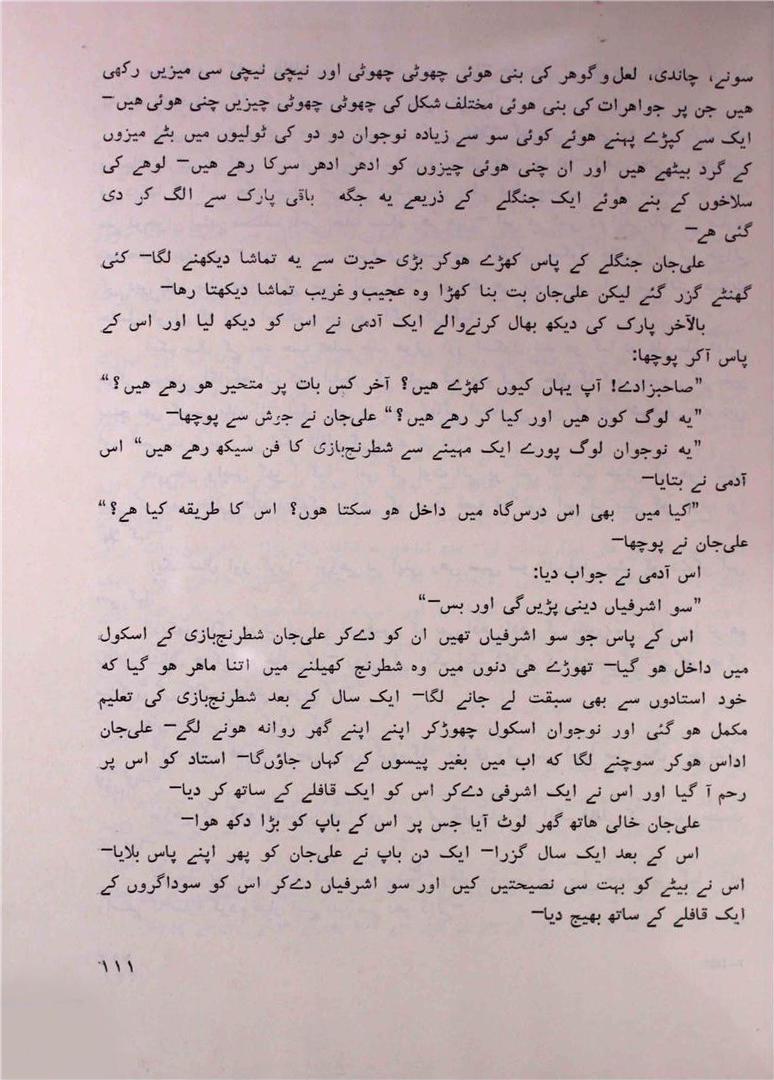 سونے، چاندی، لعل و گوهر کی بنی هوئی چھوٹی چھوٹی اور نیچی نیچی سی میزیں رکھی
هیں جن پر جواهرات کی بنی هوئی مختلف شکل کی چھوٹی چھوٹی چیزیں چنی هوئی هیں—
ایک سے کپڑے پہنے هوئے کوئی سو سے زیاده نوجوان دو دو کی ٹولیوں میں بٹے میزوں
کے گرد بیٹھے هیں اور ان چنی هوئی چیزوں کو ادهر ادهر سرکا رهے هیں— لوهے کی
سلاخوں کے بنے هوئے ایک جنگلے کے ذریعے یه جگه باقی پارک سے الگ کر دی
گئی هے—
علی‌جان جنگلے کے پاس کھڑے هوکر بڑی حیرت سے یه تماشا دیکھنے لگا— کئی
گھنٹے گزر گئے لیکن علی‌جان بت بنا کھڑا وه عجیب و غریب تماشا دیکھتا رها—
بالآخر پارک کی دیکھ بھال کرنے‌والے ایک آدمی نے اس کو دیکھ لیا اور اس کے
پاس آکر پوچھا:
”صاحبزادے! آپ یہاں کیوں کھڑے هیں؟ آخر کس بات پر متحیر هو رهے هیں؟“
”یه لوگ کون هیں اور کیا کر رهے هیں؟“ علی‌جان نے جوش سے پوچھا—
”یه نوجوان لوگ پورے ایک مہینے سے شطرنج‌بازی کا فن سیکھ رهے هیں“ اس
آدمی نے بتایا—
”کیا میں بھی اس درس‌گاه میں داخل هو سکتا هوں؟ اس کا طریقه کیا هے؟“
علی‌جان نے پوچھا—
اس آدمی نے جواب دیا:
”سو اشرفیاں دینی پڑیں‌گی اور بس—“
اس کے پاس جو سو اشرفیاں تھیں ان کو دے‌کر علی‌جان شطرنج‌بازی کے اسکول
میں داخل هو گیا— تھوڑے هی دنوں میں وه شطرنج کھیلنے میں اتنا ماهر هو گیا که
خود استادوں سے بھی سبقت لے جانے لگا— ایک سال کے بعد شطرنج‌بازی کی تعلیم
مکمل هو گئی اور نوجوان اسکول چھوڑکر اپنے اپنے گھر روانه هونے لگے— علی‌جان
اداس هوکر سوچنے لگا که اب میں بغیر پیسوں کے کہاں جاؤں‌گا— استاد کو اس پر
رحم آ گیا اور اس نے ایک اشرفی دے‌کر اس کو ایک قافلے کے ساتھ کر دیا—
علی‌جان خالی هاتھ گھر لوٹ آیا جس پر اس کے باپ کو بڑا دکھ هوا—
اس کے بعد ایک سال گزرا— ایک دن باپ نے علی‌جان کو پھر اپنے پاس بلایا—
اس نے بیٹے کو بہت سی نصیحتیں کیں اور سو اشرفیاں دے‌کر اس کو سوداگروں کے
ایک قافلے کے ساتھ بھیج دیا—
۱۱۱